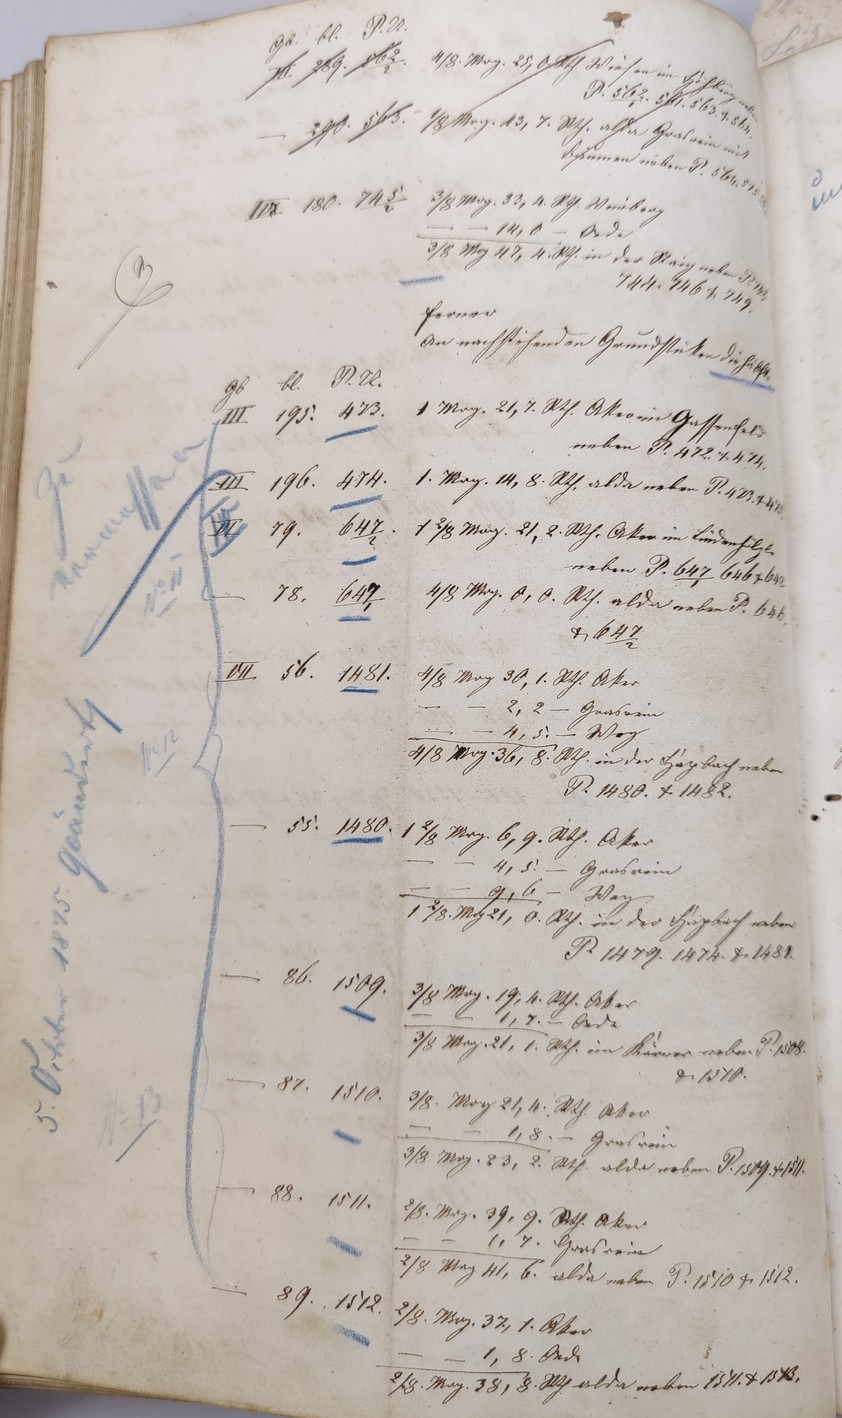 gb. bl. P. N.
III. 289. 562/2. 4/8. Mrg. 25, 0. Rth. Wiesen im
P. 562/1. 561. 563. & 564.
— 290. 563. — 1/8 Mrg. 13, 7. Rth. alda Grasrain mit
Bäumen neben P. 564.
III. 180. 745/2 3/8 Mrg. 33, 4. Rth. Weinberg
— — 14, 0 — Oede
3/8 Mrg 47, 4. Rth. in der Staig neben P.
744. 746 & 749.
ferner
An nachstehenden Grundstüken die Hälfte.
gb bl. P. N.
III 195. 473. 1 Mrg. 21, 7. Rth. Aker im Gassenfeld
neben P. 472 & 474.
III 196. 474. 1. Mrg. 14, 8. Rth. alda neben P. 473. & 475
VI 79. 647/2. 1 2/8 Mrg. 21, 2. Rth. Aker im
neben P. 647/1 646 & 642
— 78. 647/1 4/8 Mrg. 0, 0. Rth. alda neben P. 646.
& 647/2
VII 56. 1481. 4/8 Mrg 30, 1. Rth. Aker
— — 2, 2 — Grasrain
— — 4, 5. — Weg
4/8 Mrg. 36, 8. Rth. in der neben
P. 1480. & 1482.
— 55. 1480. 1 2/8 Mrg. 6, 9. Rth. Aker
— — 4, 5. — Grasrain
— — 9, 6 — Weg
1 2/8. Mrg 21, 0. Rth. in der neben
P. 1479. 1474. & 1481.
— 86. 1509. 3/8 Mrg. 19, 4. Rth. Aker
— — 1, 7. — Oede
3/8 Mrg. 21, 1. Rth. im neben P. 1508.
& 1510.
— 87. 1510. 3/8. Mrg 21, 4. Rth. Aker
— — 1, 8. — Grasrain
3/8 Mrg. 23, 2. Rth. alda neben P. 1509. & 1511.
— 88. 1511. 2/8. Mrg. 39, 9. Rth. Aker
— — 1, 7. Grasrain
2/8 Mrg 41, 6. alda neben P. 1510 & 1512.
— 89. 1512. 2/8. Mrg. 37, 1. Aker
— — 1, 8. Oede
2/8. Mrg. 38, 8. Rth alda neben 1511. & 1513.
5. October 1875 geändert
No 12
No 13